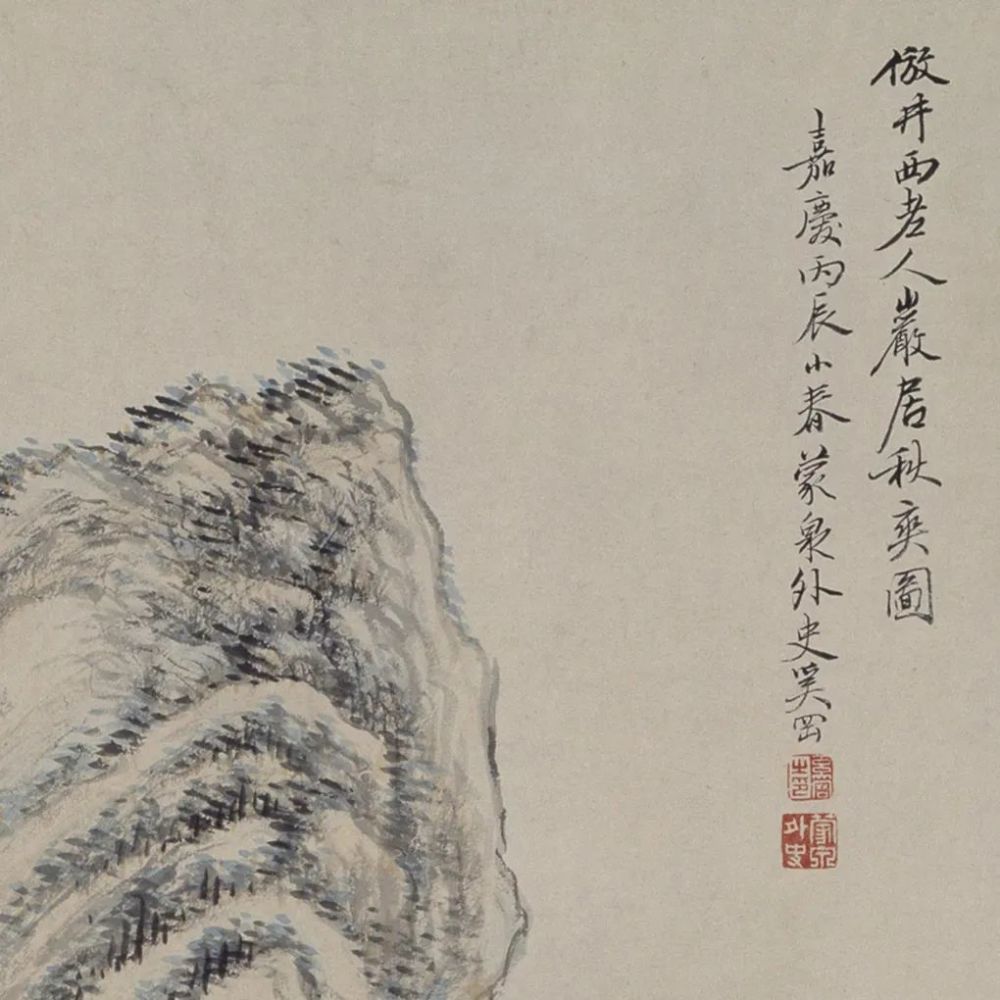 倣井西老人巖居秋爽圖
嘉慶丙辰小春蒙泉外史奚岡
奚岡之印
蒙泉外史